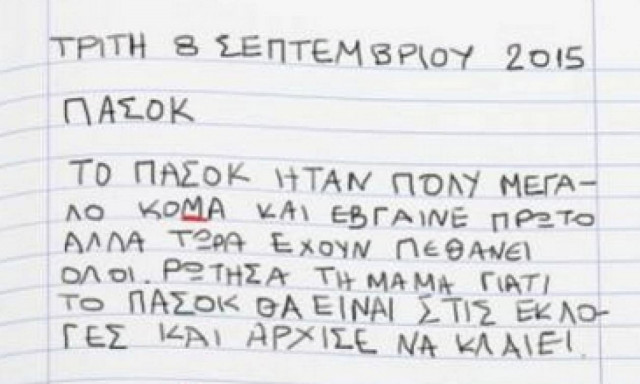 ΤΡΙΤΗ 8 ΣΕΠΤΕΜΒΡΙΟΥ 2015
ΠΑΣΟΚ
ΤΟ ΠΑΣΟΚ ΗΤΑΝ ΠΟΛΥ ΜΕΓΑ-
ΛΟ ΚΟΜΑ ΚΑΙ ΕΒΓΑΙΝΕ ΠΡΩΤΟ
ΑΛΛΑ ΤΩΡΑ ΕΧΟΥΝ ΠΕΘΑΝΕΙ
ΟΛΟΙ. ΡΩΤΗΣΑ ΤΗ ΜΑΜΑ ΓΙΑΤΙ
ΤΟ ΠΑΣΟΚ ΘΑ ΕΙΝΑΙ ΣΤΙΣ ΕΚΛΟ-
ΓΕΣ ΚΑΙ ΑΡΧΙΣΕ ΝΑ ΚΛΑΙΕΙ.